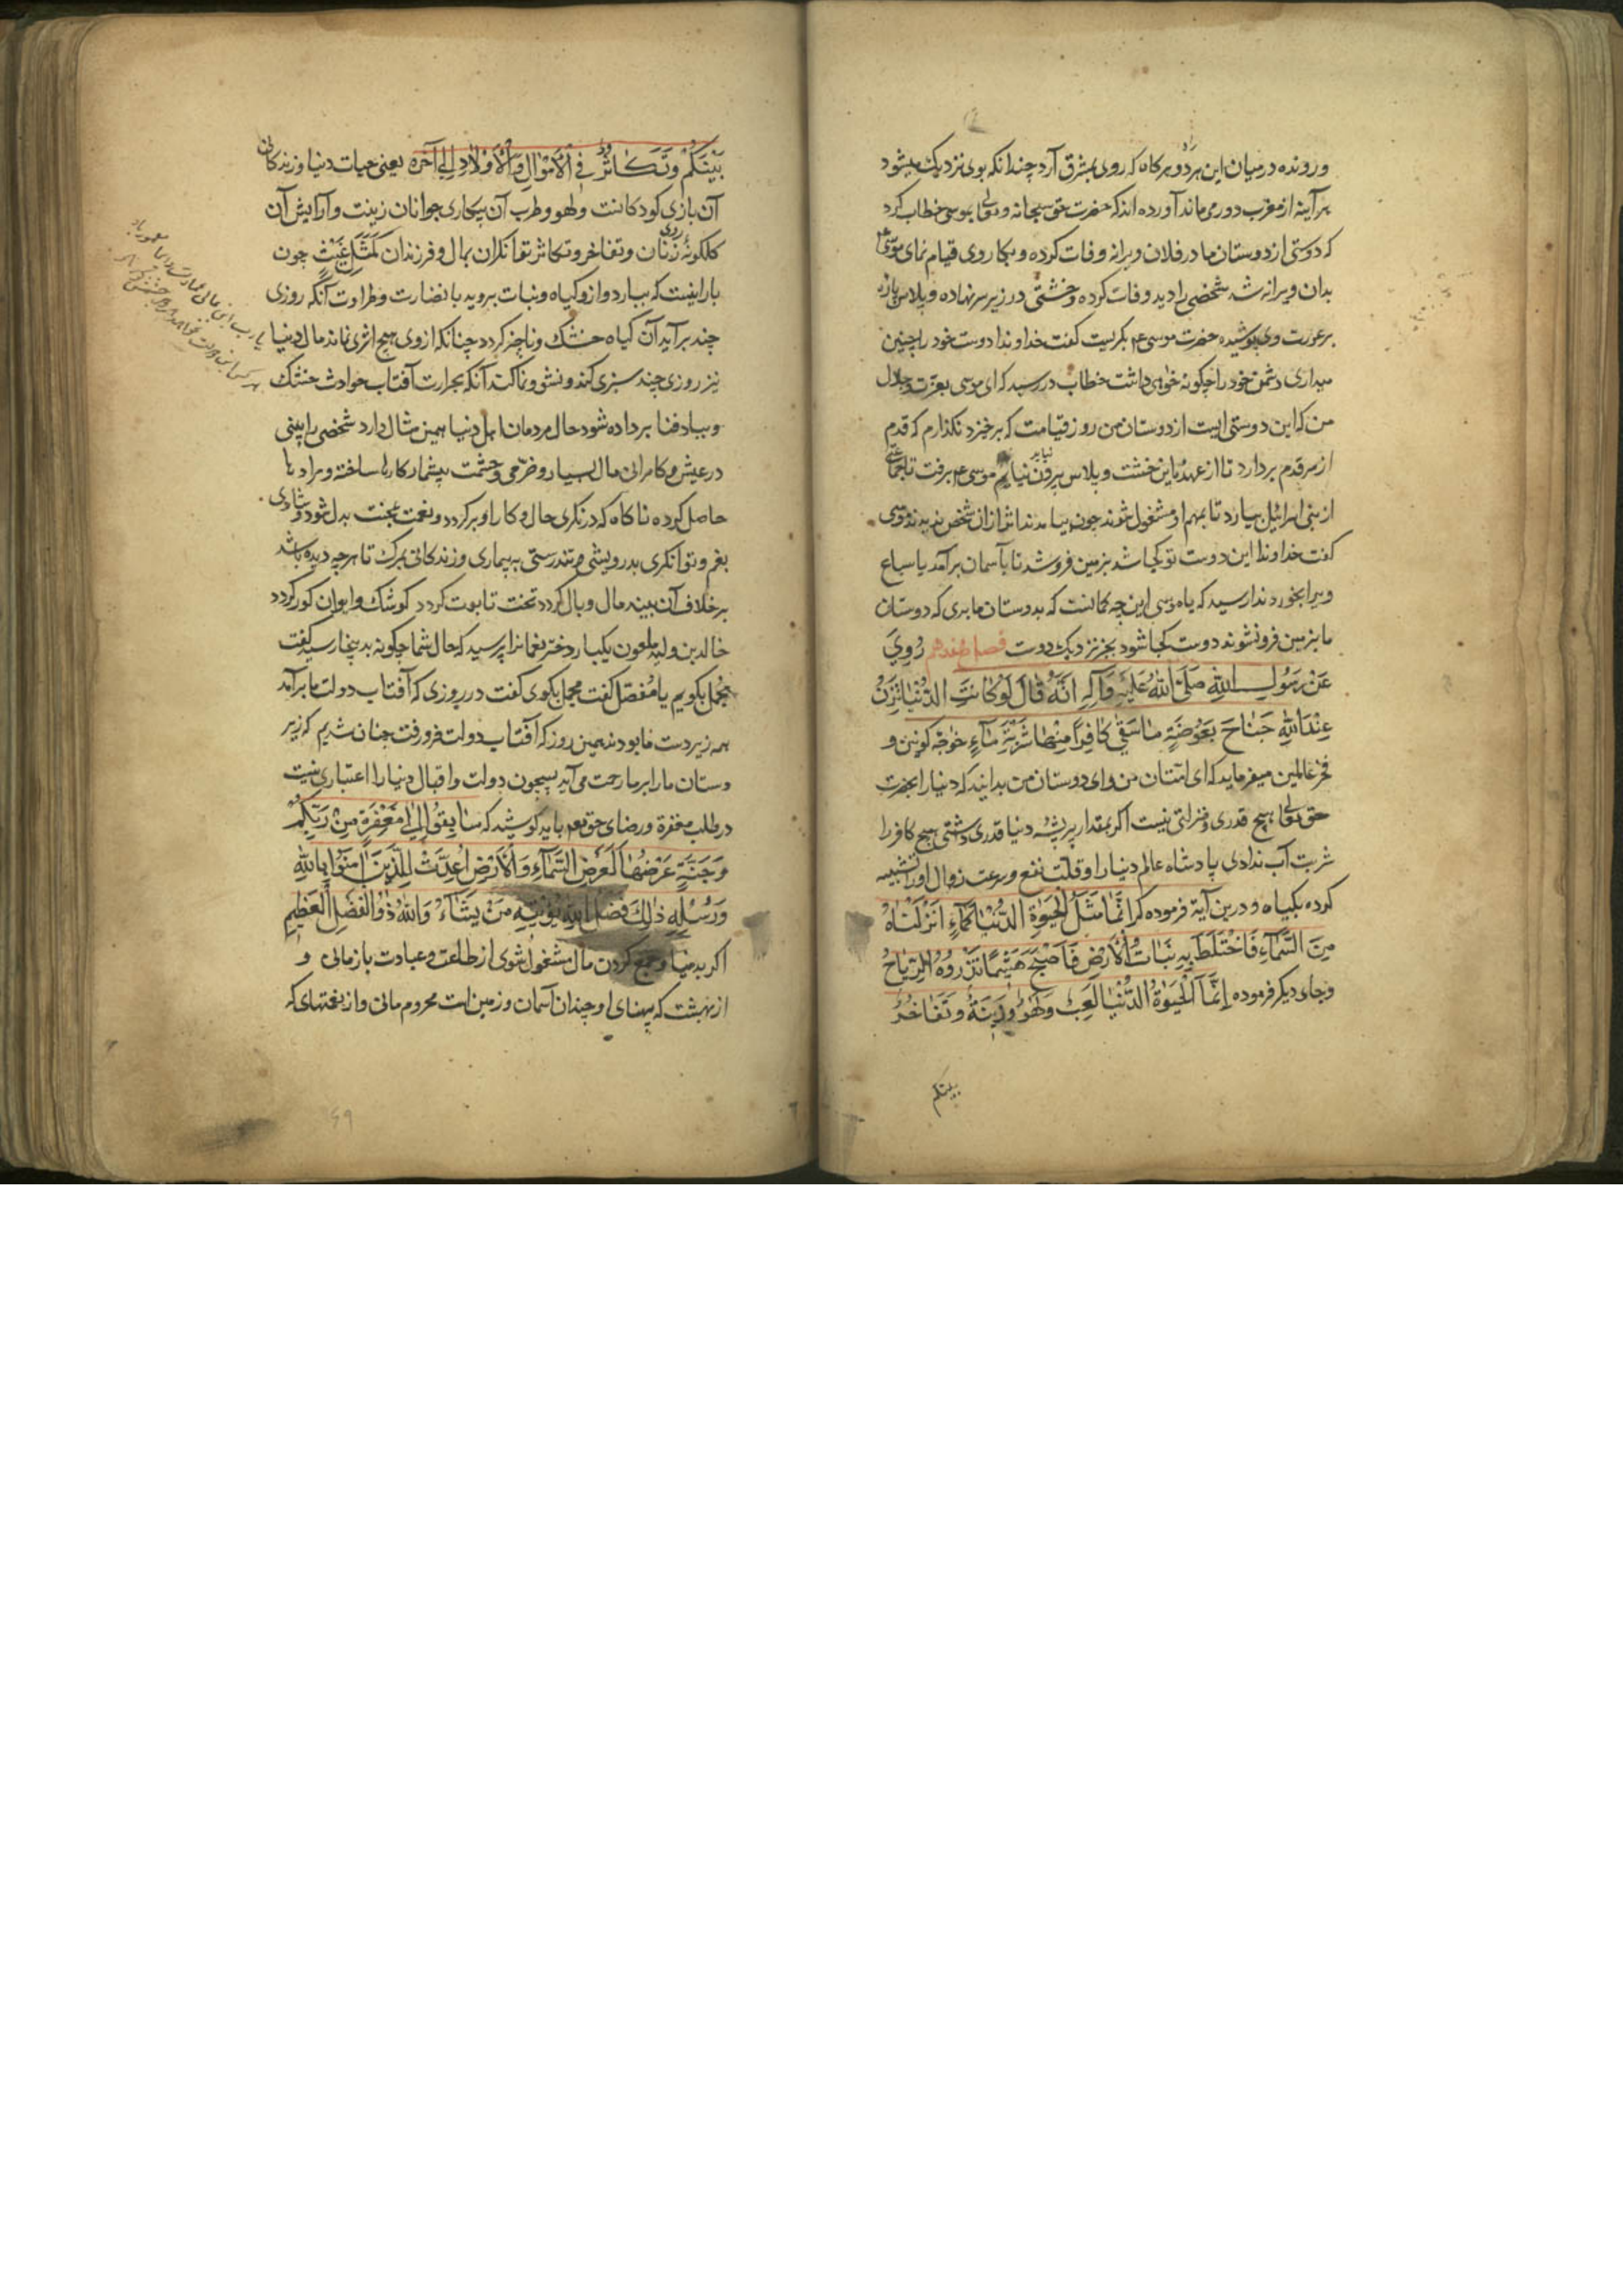 و رونده در میان این هر دو هر کاه که روی بمشرق آرد چندانکه بوی نزدیک میشود
هر آینه از مغرب دور می ماند آورده اند که حضرت حق سبحانه و تعالی بموسی خطاب کرد
که دوستی از دوستان ما در فلان ویرانه وفات کرده و بکار وی قیام نمای موسی ع
بدان ویرانه شد شخصی را دید وفات کرده و خشتی در زیر سر نهاده و پلاس پاره
بر عورت وی پوشیده حضرت موسی ع بکریست کفت خداوندا دوست خود را چنین
میداری دشمن خود را چکونه خواهی داشت خطاب در رسید که ای موسی بعزت و جلال
من که این دوستی ایست از دوستان من روز قیامت که برخیزد نکذارم که قدم
از سر قدم بردارد تا از عهده این خشت و پلاس بیرون نیاید موسی ع برفت تا جماعتی
از بنی اسرائیل بیارد تا بمهم او مشغول شوند چون بیامدند اثر از آن شخص ندیدند موسی
کفت خداوندا این دوست تو کجا شد بزمین فرو شد تا بآسمان برآمد یا سباع
ویرا بخوردند ندا رسید که یا موسی این چه کمانست که بدوستان ما بری که دوستان
ما بزمین فرو نشوند دوست کجا شود بجز نزدیک دوست فصل هفدهم رُوِيَ
عَنْ رَسُولِ اللهِ صَلَّى اللهُ عَلَيْهِ وَآلِهِ اَنَّهُ قَالَ لَوْ كَانَتِ الدُّنْيَا تَزِنُ
عِنْدَ اللهِ جَنَاحَ بَعُوضَةٍ مَا سَقٰى كَافِراً مِنْهَا شَرْبَةَ مَآءٍ خواجه کونین و
فخر عالمین میفرماید که ای امتان من و ای دوستان من بدانید که دنیا را بحضرت
حق تعالی هیچ قدری و منزلتی نیست اکر بمقدار پر پشه دنیا قدری داشتی هیچ کافر را
شربت آب ندادی پادشاه عالم دنیا را و قلت نفع و سرعت زوال او را تشبیه
کرده بکیاه و درین آیة فرموده که اِنَّمَا مَثَلُ الْحَيٰوةِ الدُّنْيَا كَمَآءٍ اَنْزَلْنَاهُ
مِنَ السَّمَآءِ فَاخْتَلَطَ بِهِ نَبَاتُ الْاَرْضِ فَاَصْبَحَ هَشِيمًا تَذْرُوهُ الرِّيَاحُ
و جای دیکر فرموده اِنَّمَا الْحَيٰوةُ الدُّنْيَا لَعِبٌ وَلَهْوٌ وَزِينَةٌ وَتَفَاخُرٌ
بینکم
بَيْنَكُمْ وَتَكَاثُرٌ فِي الْاَمْوَالِ وَالْاَوْلَادِ اِلٰى آخره یعنی حیات دنیا و زندکانی
آن بازی کودکانست و لهو و طرب آن بیکاری جوانان زینت و آرایش آن
کلکونه روی زنان و تفاخر و تکاثر توانکران بمال و فرزندان كَمَثَلِ غَيْثٍ چون
بارانیست که ببارد و ازو کیاه و نبات بروید با نضارت و طراوت آنکه روزی
چند برآید آن کیاه خشک و ناچیز کردد چنانکه از وی هیچ اثری نماند مال دنیا
نیز روزی چند سبزی کند و نشو و نما کند آنکه بحرارت آفتاب حوادث خشک
و بباد فنا برداده شود حال مردمان اهل دنیا همین مثال دارد شخصی را بینی
در عیش و کامرانی مال بسیار و خرمی و حشمت بیشمار کارها ساخته و مرادها
حاصل کرده ناکاه که درنکری حال و کار او برکردد و نعمت بمحنت بدل شود و شادی
بغم و توانکری بدرویشی و تندرستی به بیماری و زندکانی بمرک تا هرچه دیده باشد
برخلاف آن بیند مال وبال کردد تخت تابوت کردد کوشک و ایوان کور کردد
خالد بن ولید ملعون یکبار دختر نعمانرا پرسید که حال شما چکونه بدینجا رسید کفت
مجمل بکویم یا مفصل کفت مجمل بکوی کفت در روزی که آفتاب دولت ما برآمد
همه زیردست ما بودند همین روز که آفتاب دولت فرو رفت چنان شدیم که زیر
دستان ما را بر ما رحمت می آید پس چون دولت و اقبال دنیا را اعتباری نیست
در طلب مغفرة و رضای حق تع باید کوشید که سَابِقُوا اِلٰى مَغْفِرَةٍ مِنْ رَبِّكُمْ
وَجَنَّةٍ عَرْضُهَا كَعَرْضِ السَّمَآءِ وَالْاَرْضِ اُعِدَّتْ لِلَّذِينَ آمَنُوا بِاللهِ
وَرُسُلِهِ ذٰلِكَ فَضْلُ اللهِ يُؤْتِيهِ مَنْ يَشَآءُ وَاللهُ ذُو الْفَضْلِ الْعَظِيمِ
اکر بدنیا و جمع کردن مال مشغول شوی از طاعت و عبادت بازمانی و
از بهشت که پهنای او چندان آسمان و زمین است محروم مانی و از نعمتهای که
۶۹